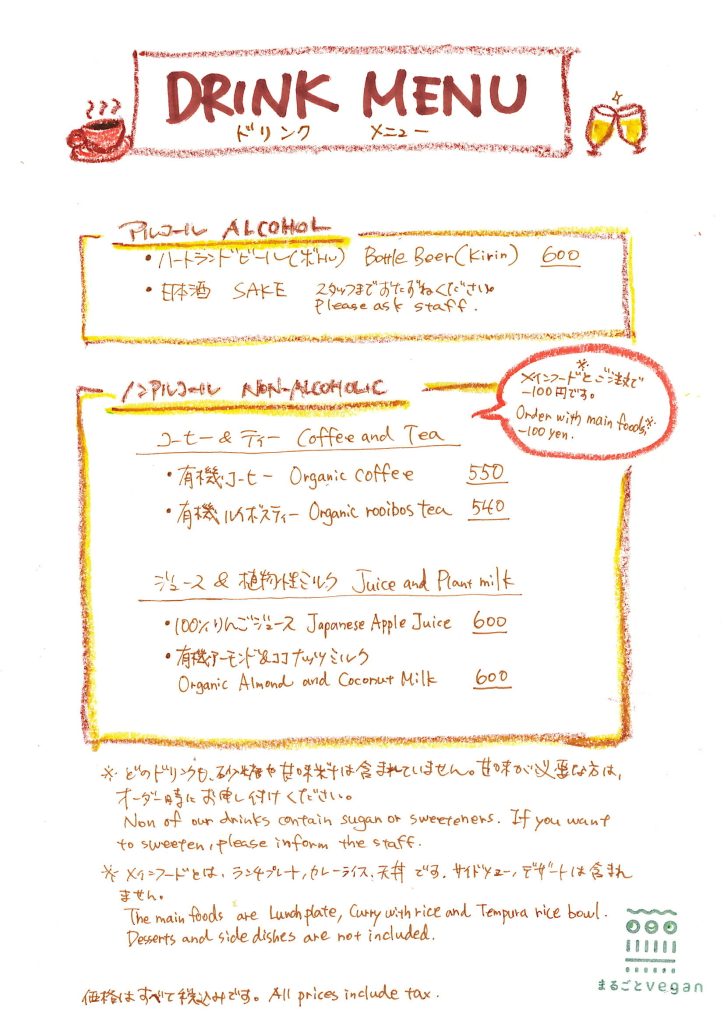 DRINK MENU
ドリンク メニュー
アルコール ALCOHOL
・ハートランドビール(ボトル) Bottle Beer(Kirin) 600
・日本酒 SAKE スタッフまでおたずねください。
Please ask staff.
ノンアルコール NON-ALCOHOLIC
※
メインフードとご注文で
-100円です。
Order with main foods,※
-100 yen.
コーヒー & ティー Coffee and Tea
・有機コーヒー Organic coffee 550
・有機ルイボスティー Organic rooibos tea 540
ジュース & 植物性ミルク Juice and Plant milk
・100%りんごジュース Japanese Apple Juice 600
・有機アーモンド&ココナッツミルク
Organic Almond and Coconut Milk 600
※ どのドリンクも、砂糖や甘味料は含まれていません。甘味が必要な方は、
オーダー時にお申し付けください。
Non of our drinks contain sugan or sweeteners. If you want
to sweeten, please inform the staff.
※ メインフードとは、ランチプレート、カレーライス、天丼です。サイドメニュー、デザートは含まれ
ません。
The main foods are Lunch plate, Curry with rice and Tempura rice bowl.
Desserts and side dishes are not included.
価格はすべて税込みです。All prices include tax.
まるごとvegan